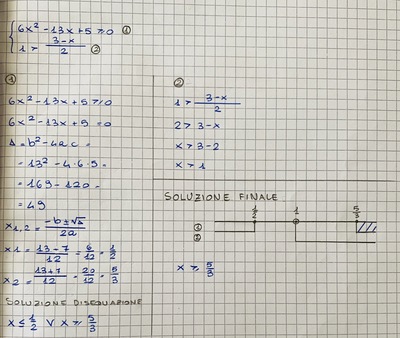 {6x² - 13x + 5 ≥ 0 ①
{1 > (3-x)/2 ②
①
6x² - 13x + 5 ≥ 0
6x² - 13x + 5 = 0
Δ = b² - 4ac =
= 13² - 4·6·5 =
= 169 - 120 =
= 49
x1,2 = (-b ± √Δ)/2a
x1 = (13-7)/12 = 6/12 = 1/2
x2 = (13+7)/12 = 20/12 = 5/3
SOLUZIONE DISEQUAZIONE
x ≤ 1/2 ∨ x ≥ 5/3
②
1 > (3-x)/2
2 > 3-x
x > 3-2
x > 1
SOLUZIONE FINALE
1/2 1 5/3
①
②
x ≥ 5/3